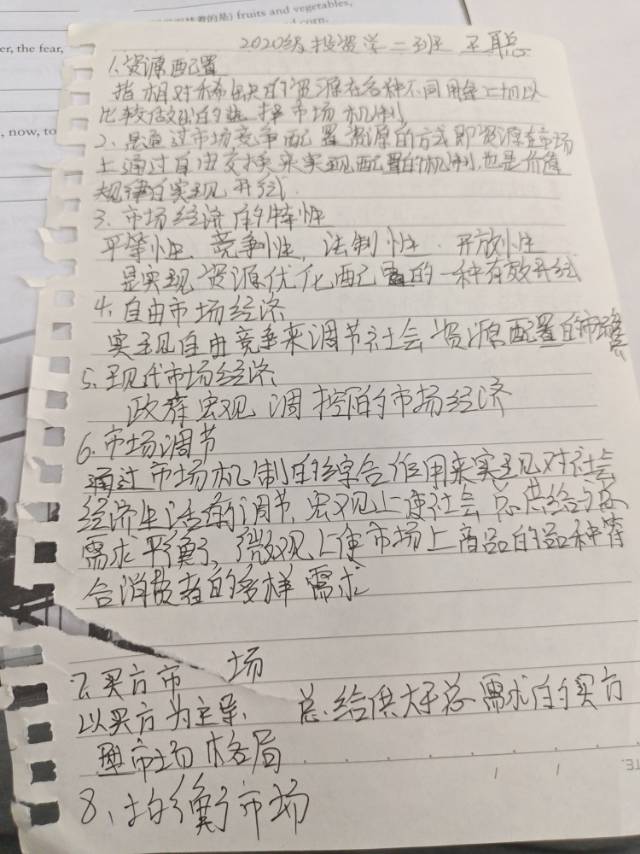 (的是) fruits and vegetables,
corn.
er, the fear,
, now, to
2020级投资学二班 王聪
1.资源配置
指相对稀缺的资源在各种不同用途上加以
比较做出的选择市场机制
2、是通过市场竞争配置资源的方式即资源在市场
上通过自由交换来实现配置的机制,也是价值
规律的实现形式.
3. 市场经济的特性
平等性、竞争性,法制性.开放性
是实现资源优化配置的一种有效形式
4.自由市场经济
实现自由竞争来调节社会资源配置的市场
5.现代市场经济
政府宏观调控的市场经济
6.市场调节
通过市场机制的综合作用来实现对社会
经济生活的调节,宏观上使社会总供给与总
需求平衡,微观上使市场上商品的品种符
合消费者的多样需求
7.买方市场
以买方为主导. 总给供大于总需求的买方
市场格局
8、均衡市场